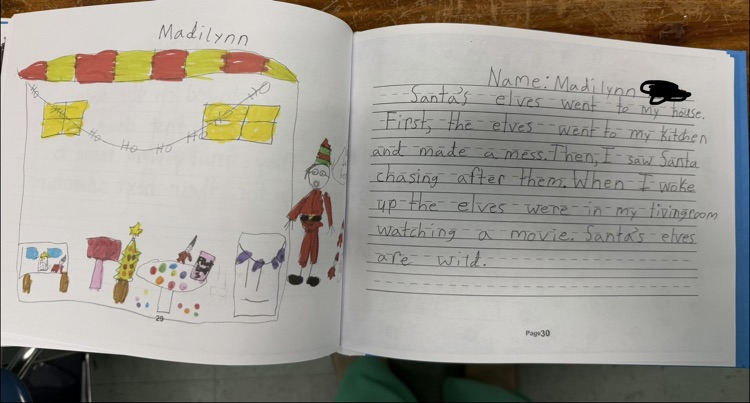 Madilynn
HO
HO
HO
HO
HO
HO
29
Name: Madilynn
Santa's elves went to my house.
First, the elves went to my kitchen
and made a mess. Then, I saw Santa
chasing after them. When I woke
up the elves were in my livingroom
watching a movie. Santa's elves
are wild.
Page30